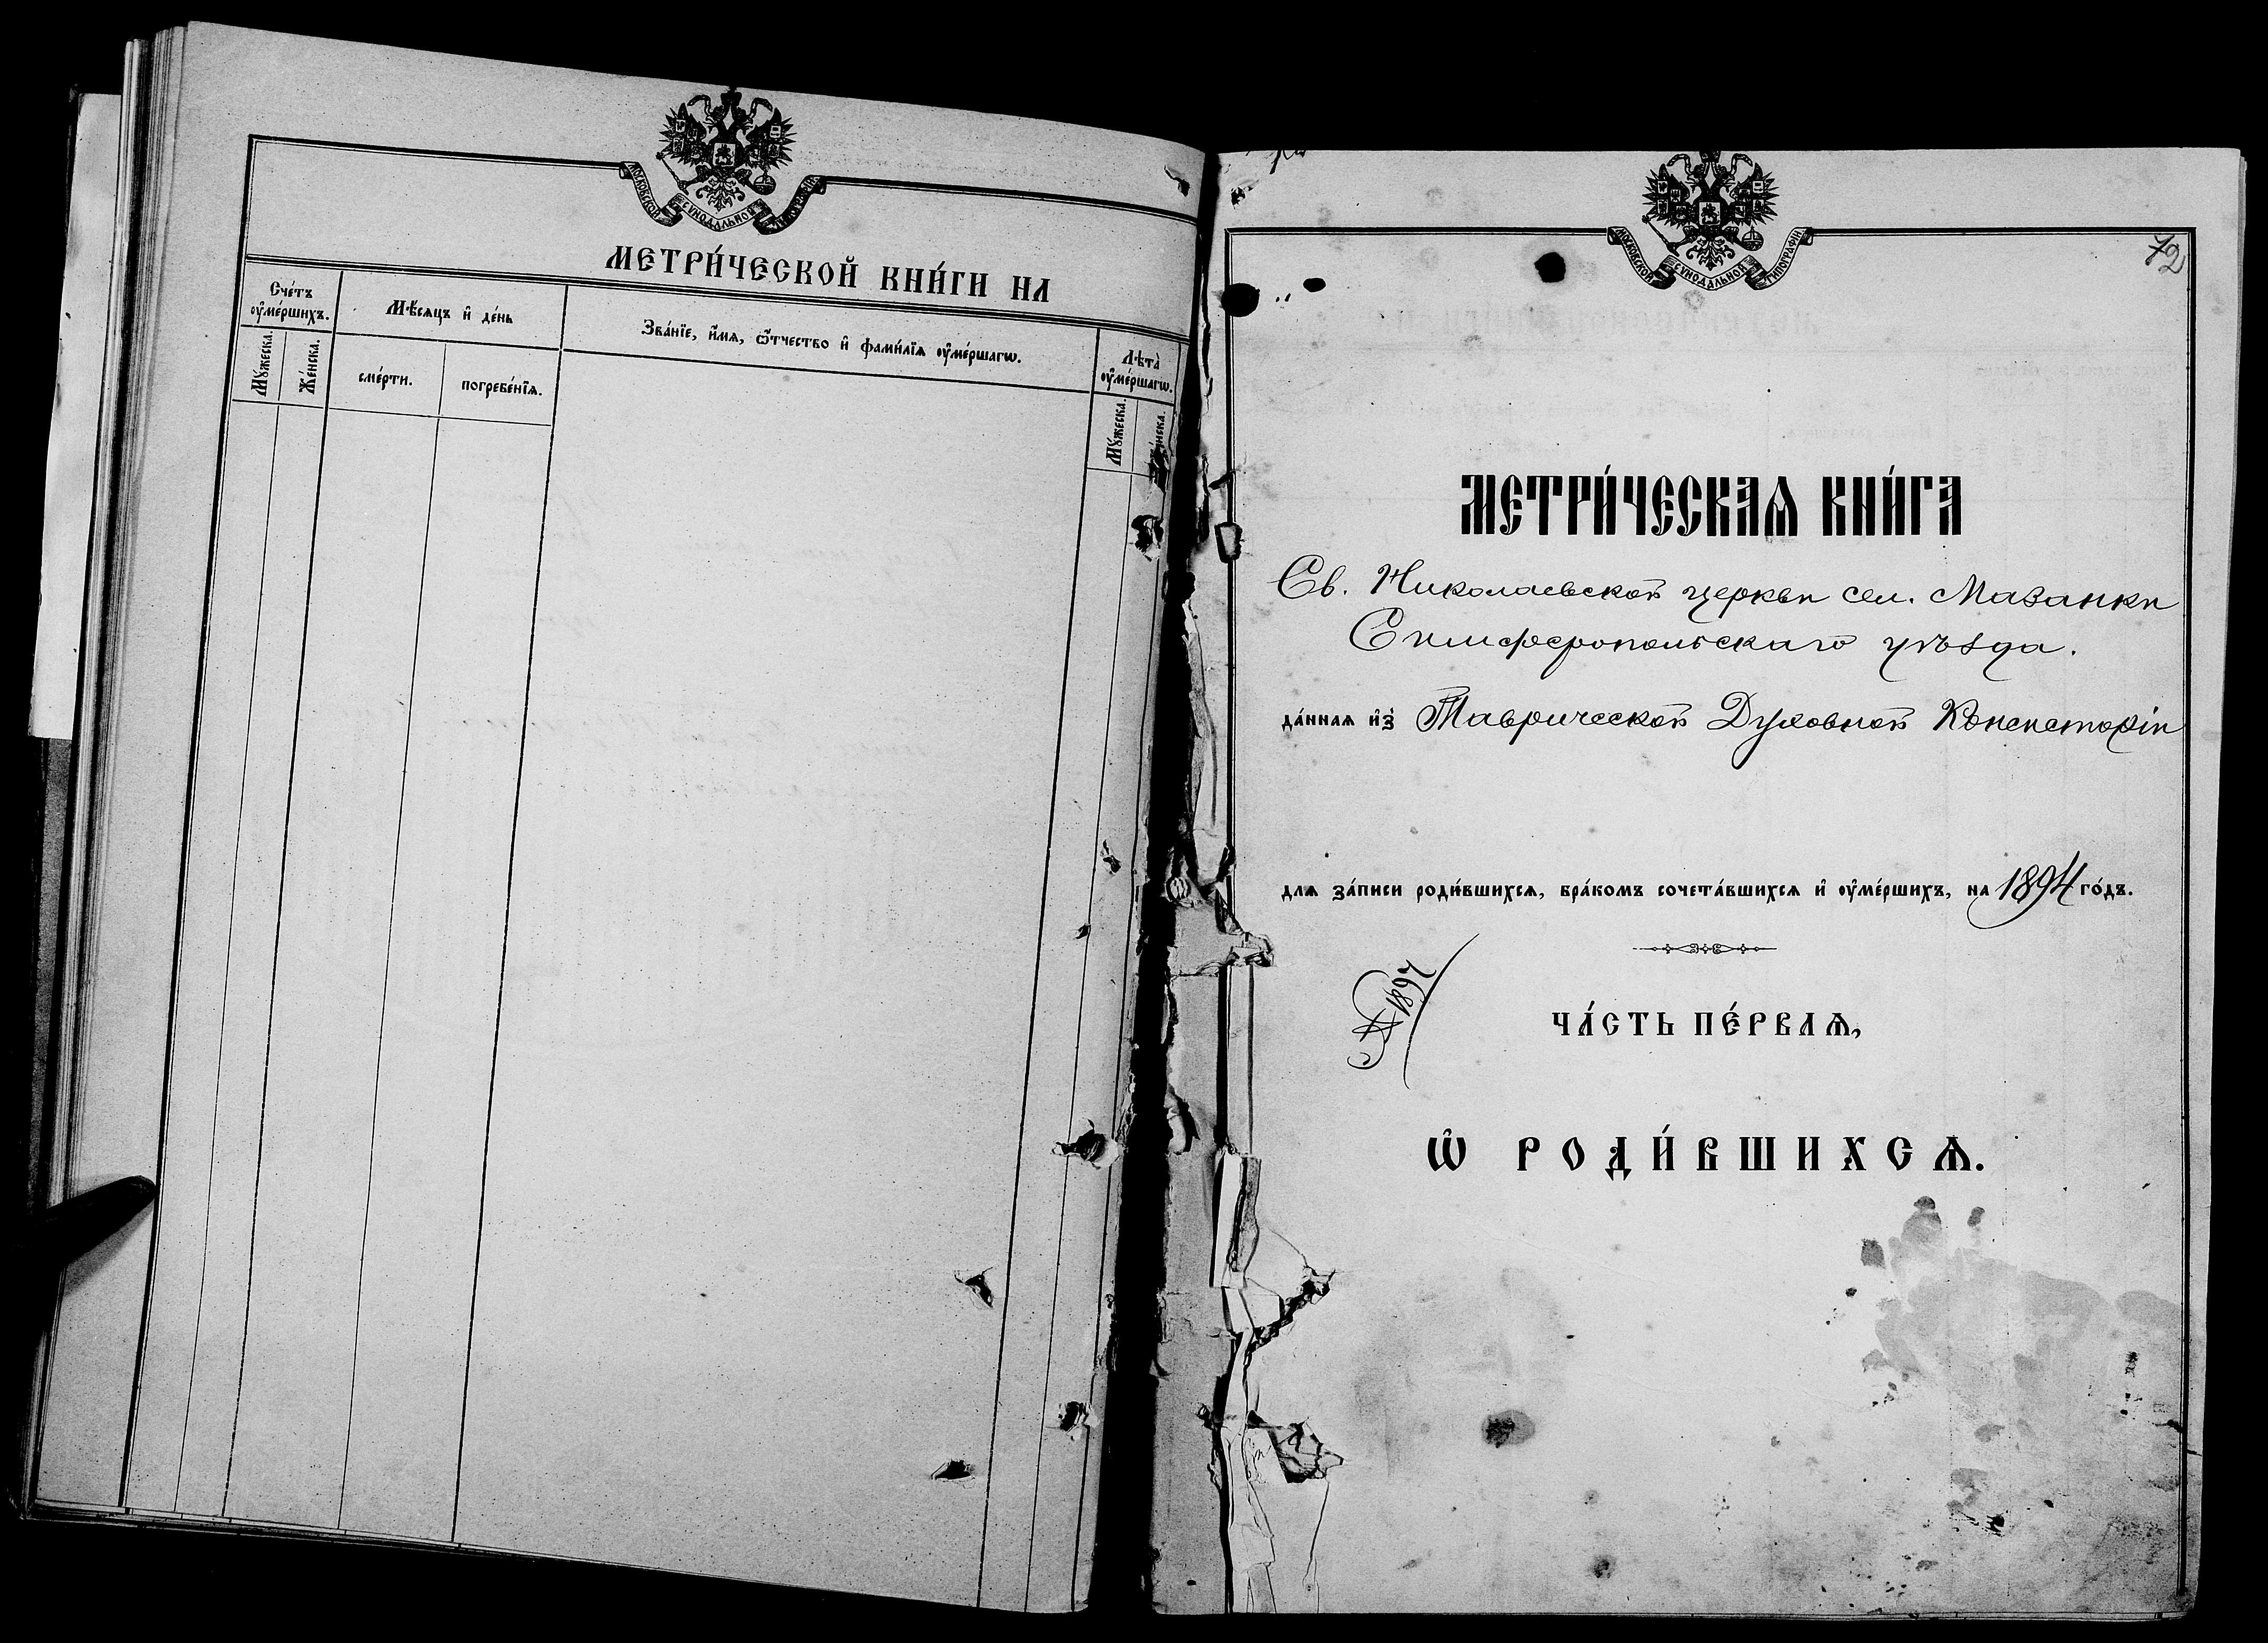 МОСКОВСКОЙ СѴНОДАЛЬНОЙ ТИПОГРАФІИ
МЕТРИ́ЧЕСКОЙ КНИ́ГИ НА
Сче́тъ ᲂу҆ме́ршихъ.
Мꙋ́жеска.
Же́нска.
Мѣ́сяцъ и҆ де́нь
сме́рти.
погребе́нїѧ.
Зва́нїе, и҆́мѧ, ѻ҆́тчество и҆ фами́лїѧ ᲂу҆ме́ршагѡ.
Лѣта̀ ᲂу҆ме́ршагѡ.
Мꙋ́жеска.
Же́нска.
МОСКОВСКОЙ СѴНОДАЛЬНОЙ ТИПОГРАФІИ
72
МЕТРИ́ЧЕСКАѦ КНИ́ГА
Св. Николаевской церкви сел. Мазанки
Симферопольскаго уѣзда.
да́ннаѧ и҆з̾ Таврической Духовной Консисторіи
длѧ за́писи роди́вшихсѧ, бра́комъ сочета́вшихсѧ и҆ ᲂу҆ме́ршихъ, на 1894 го́дъ.
1894
ЧА́СТЬ ПЕ́РВАѦ,
Ѡ҆ РОДИ́ВШИХСѦ.